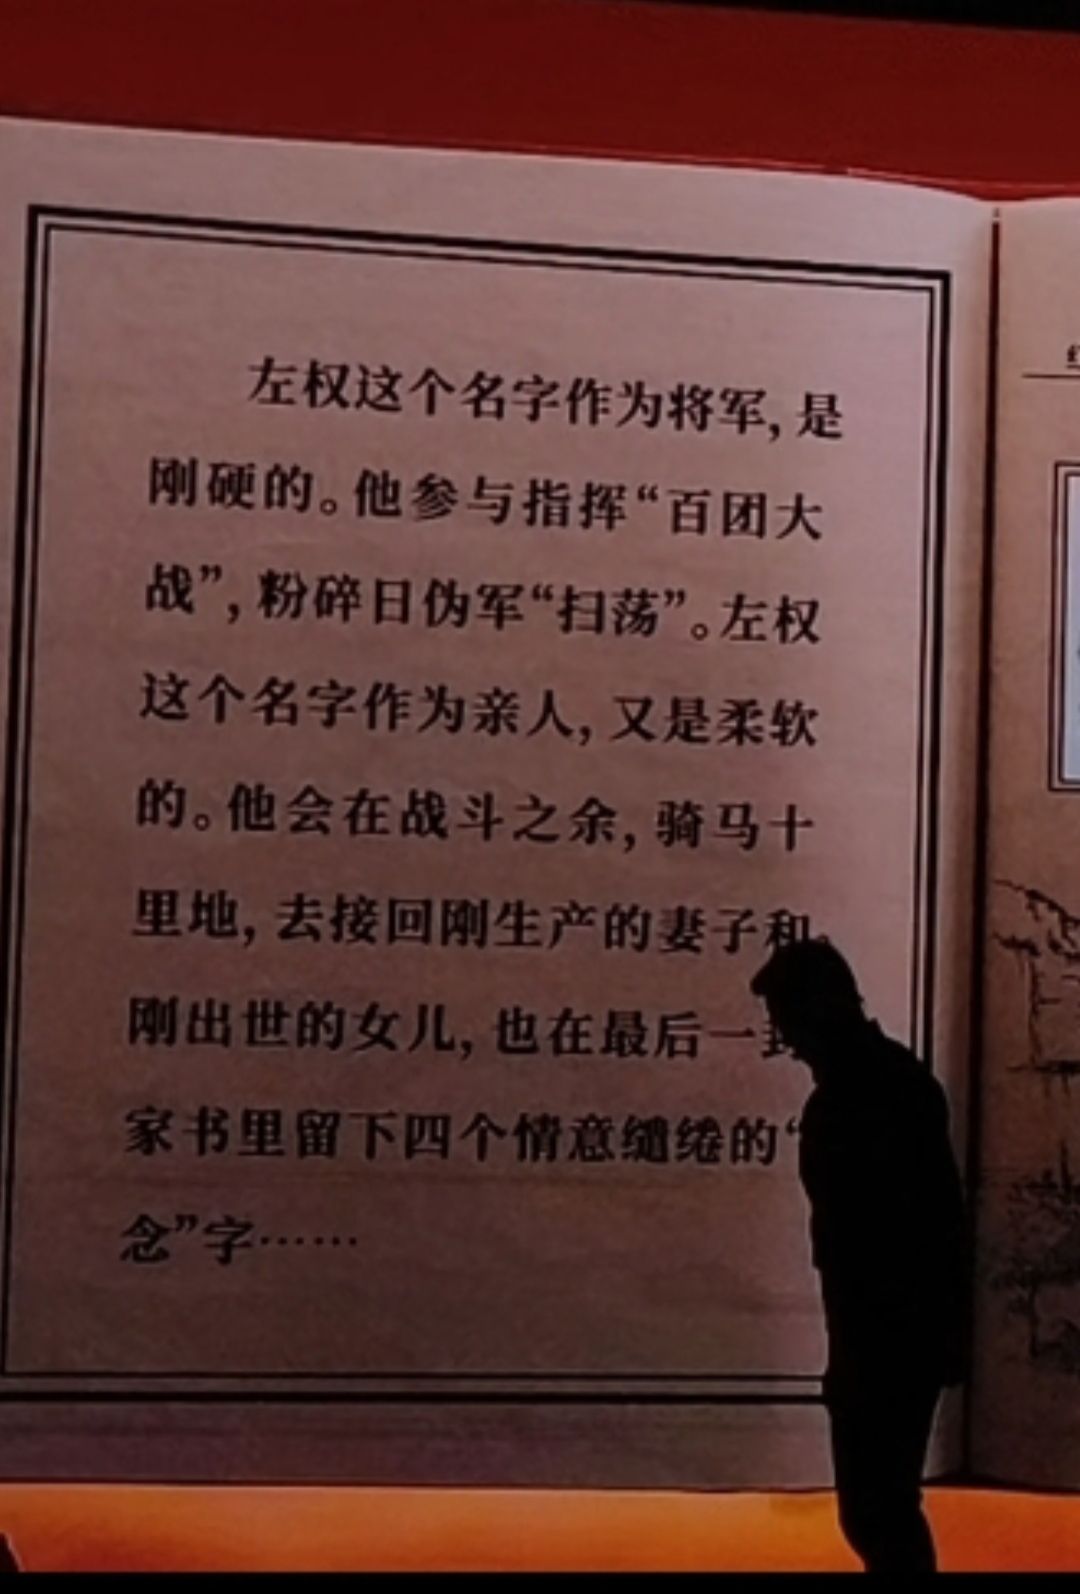 左权这个名字作为将军，是
刚硬的。他参与指挥“百团大
战”，粉碎日伪军“扫荡”。左权
这个名字作为亲人，又是柔软
的。他会在战斗之余，骑马十
里地，去接回刚生产的妻子和
刚出世的女儿，也在最后一封
家书里留下四个情意缱绻的“
念”字……